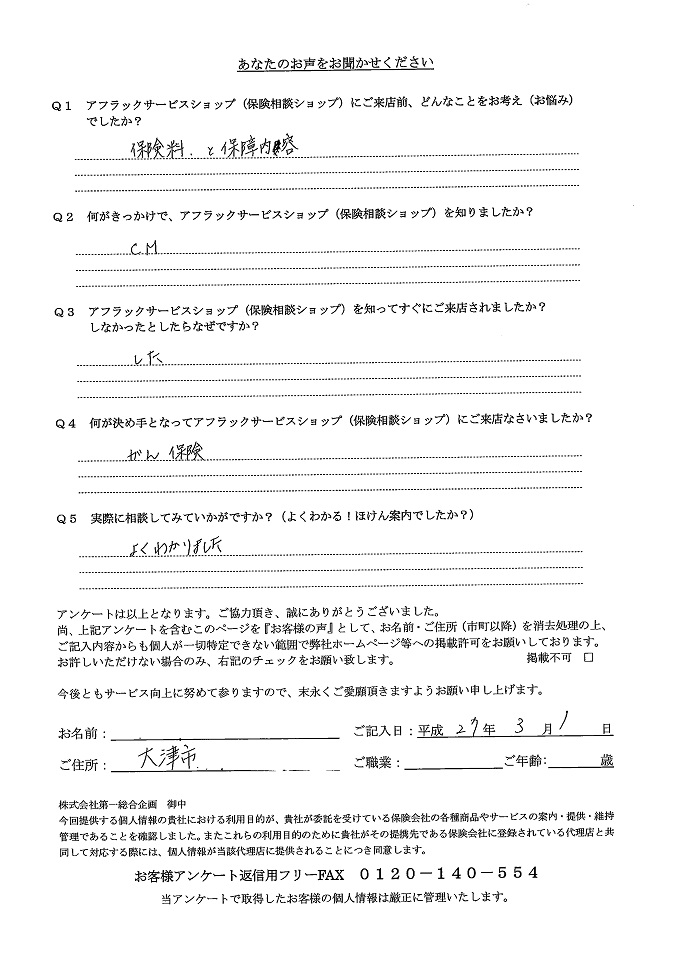 あなたのお声をお聞かせください
Q1 アフラックサービスショップ（保険相談ショップ）にご来店前、どんなことをお考え（お悩み）
でしたか？
保険料.と保障内容
Q2 何がきっかけで、アフラックサービスショップ（保険相談ショップ）を知りましたか？
CM
Q3 アフラックサービスショップ（保険相談ショップ）を知ってすぐにご来店されましたか？
しなかったとしたらなぜですか？
した
Q4 何が決め手となってアフラックサービスショップ（保険相談ショップ）にご来店なさいましたか？
がん保険
Q5 実際に相談してみていかがですか？（よくわかる！ほけん案内でしたか？）
よくわかりました
アンケートは以上となります。ご協力頂き、誠にありがとうございました。
尚、上記アンケートを含むこのページを『お客様の声』として、お名前・ご住所（市町以降）を消去処理の上、
ご記入内容からも個人が一切特定できない範囲で弊社ホームページ等への掲載許可をお願いしております。
お許しいただけない場合のみ、右記のチェックをお願い致します。 掲載不可 □
今後ともサービス向上に努めて参りますので、末永くご愛顧頂きますようお願い申し上げます。
お名前： ご記入日：平成 27年 3 月 1 日
ご住所： 大津市 ご職業： ご年齢： 歳
株式会社第一総合企画 御中
今回提供する個人情報の貴社における利用目的が、貴社が委託を受けている保険会社の各種商品やサービスの案内・提供・維持
管理であることを確認しました。またこれらの利用目的のために貴社がその提携先である保険会社に登録されている代理店と共
同して対応する際には、個人情報が当該代理店に提供されることにつき同意します。
お客様アンケート返信用フリーFAX 0120－140－554
当アンケートで取得したお客様の個人情報は厳正に管理いたします。